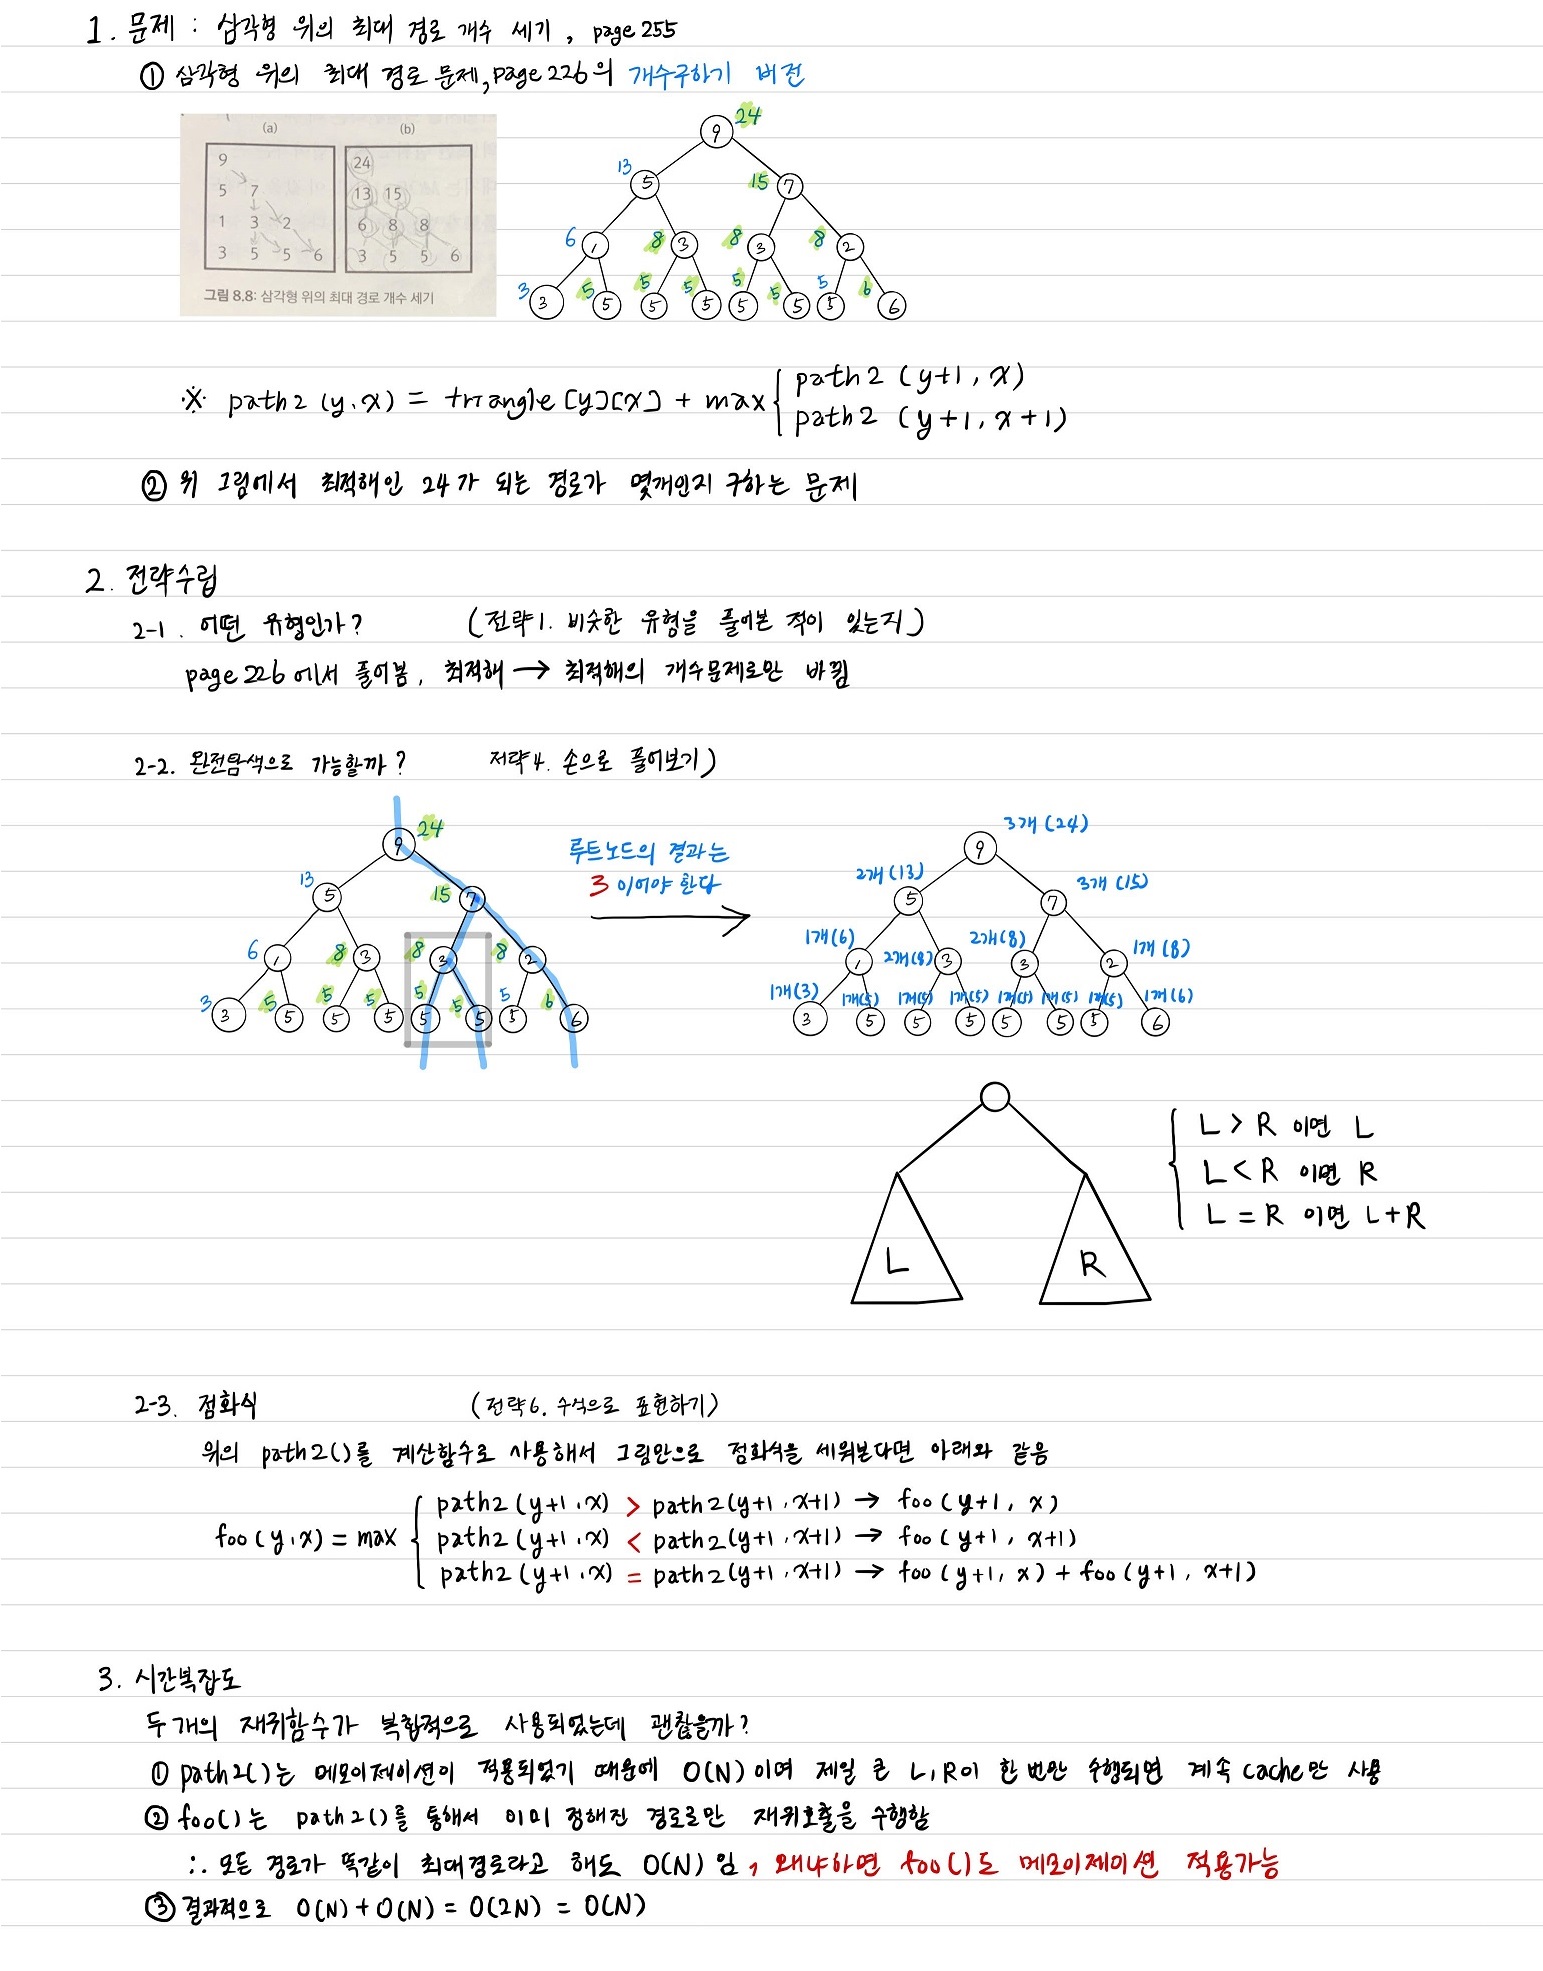 1. 문제 : 삼각형 위의 최대 경로 개수 세기, page 255
① 삼각형 위의 최대 경로 문제, page 226의 개수구하기 버전
(a) (b)
9 24
5 7 13 15
1 3 2 6 8 8
3 5 5 6 3 5 5 6
그림 8.8: 삼각형 위의 최대 경로 개수 세기
9 24
13 5 15 7
6 1 8 3 8 3 8 2
3 5 5 5 5 5 5 6
3 5 5 5 5 5 5 6
※ path2 (y, x) = triangle[y][x] + max
path2 (y+1, x)
path2 (y+1, x+1)
② 위 그림에서 최적해인 24가 되는 경로가 몇개인지 구하는 문제
2. 전략수립
2-1. 어떤 유형인가? (전략1. 비슷한 유형을 풀어본 적이 있는지)
page 226에서 풀어봄, 최적해 → 최적해의 개수문제로만 바뀜
2-2. 완전탐색으로 가능할까? 전략4. 손으로 풀어보기)
9 24
13 5 15 7
6 1 8 3 8 3 8 2
3 5 5 5 5 5 5 6
3 5 5 5 5 5 5 6
루트노드의 결과는
3 이어야 한다
3개(24)
9
2개(13) 5 3개(15) 7
1개(6) 1 2개(8) 3 2개(8) 3 1개(8) 2
1개(3) 1개(5) 1개(5) 1개(5) 1개(5) 1개(5) 1개(5) 1개(6)
3 5 5 5 5 5 5 6
L R
L > R 이면 L
L < R 이면 R
L = R 이면 L+R
2-3. 점화식 (전략6. 수식으로 표현하기)
위의 path2()를 계산함수로 사용해서 그림만으로 점화식을 세워본다면 아래와 같음
foo(y,x) = max
path2(y+1,x) > path2(y+1,x+1) → foo(y+1, x)
path2(y+1,x) < path2(y+1,x+1) → foo(y+1, x+1)
path2(y+1,x) = path2(y+1,x+1) → foo(y+1, x) + foo(y+1, x+1)
3. 시간복잡도
두개의 재귀함수가 복합적으로 사용되었는데 괜찮을까?
① path2()는 메모이제이션이 적용되었기 때문에 O(N)이며 제일 큰 L,R이 한 번만 수행되면 계속 cache만 사용
② foo()는 path2()를 통해서 이미 정해진 경로로만 재귀호출을 수행함
∴ 모든 경로가 똑같이 최대경로라고 해도 O(N)임, 왜냐하면 foo()도 메모이제이션 적용가능
③ 결과적으로 O(N)+O(N) = O(2N) = O(N)